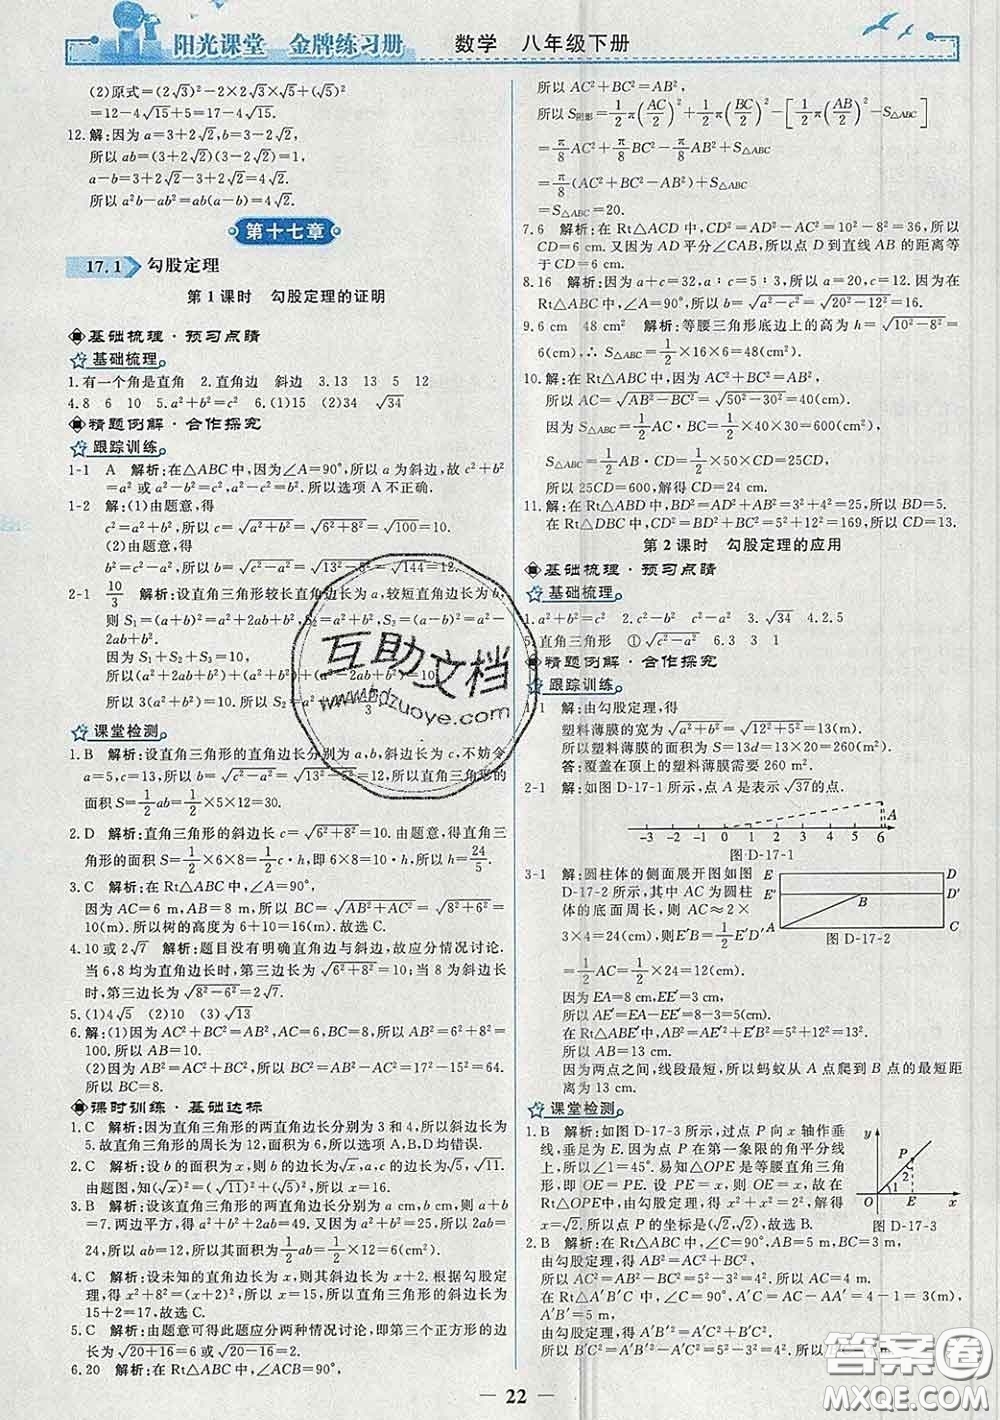 阳光课堂 金牌练习册 数学 八年级下册
(2)原式=(2√3)²-2×2√3×√5+(√5)²
=12-4√15+5=17-4√15.
12.解:因为a=3+2√2,b=3-2√2,
所以ab=(3+2√2)(3-2√2)=1,
a-b=3+2√2-3+2√2=4√2.
所以a²b-ab²=ab(a-b)=4√2.
第十七章
17.1 勾股定理
第1课时 勾股定理的证明
基础梳理·预习点睛
基础梳理
1.有一个角是直角 2.直角边 斜边 3.13 13 5 12
4.8 6 10 5.a²+b²=c² 6.(1)15 (2)34 √34
精题例解·合作探究
跟踪训练
1-1 A 解析:在△ABC中,因为∠A=90°,所以a为斜边,故c²+b²
=a²或a²-b²=c²或a²-c²=b².所以选项A不正确.
1-2 解:(1)由题意,得
c²=a²+b²,所以c=√(a²+b²)=√(6²+8²)=√100=10.
(2)由题意,得
b²=c²-a²,所以b=√(c²-a²)=√(13²-5²)=√144=12.
2-1 10/3 解析:设直角三角形较长直角边长为a,较短直角边长为b,
则S₁=(a+b)²=a²+2ab+b²,S₂=a²+b²,S₃=(a-b)²=a²-
2ab+b².
因为S₁+S₂+S₃=10,
所以(a²+2ab+b²)+(a²+b²)+(a²-2ab+b²)=10.
所以3(a²+b²)=10.所以S₂=a²+b²=10/3.
课堂检测
1.B 解析:设直角三角形的直角边长分别为a,b,斜边长为c,不妨令
a=5,c=13,所以b=√(c²-a²)=√(13²-5²)=12,所以直角三角形的
面积S=1/2ab=1/2×5×12=30.
2.D 解析:直角三角形的斜边长c=√(6²+8²)=10.由题意,得直角三
角形的面积S=1/2×6×8=1/2c·h,即6×8=10×h,所以h=24/5.
3.C 解析:在Rt△ABC中,∠A=90°,
因为AB=6 m,AC=8 m,所以BC=√(AB²+AC²)=√(6²+8²)=
10(m).所以树的高度为6+10=16(m).故选C.
4.10或2√7 解析:题目没有明确直角边与斜边,故应分情况讨论.
当6,8均为直角边长时,第三边长为√(6²+8²)=10.当8为斜边长时,
第三边长为√(8²-6²)=2√7.
5.(1)4√5 (2)10 (3)√13
6.解:(1)因为AC²+BC²=AB²,AC=6,BC=8,所以AB²=6²+8²=
100.所以AB=10.
(2)因为AC²+BC²=AB²,所以BC²=AB²-AC²=17²-15²=64.
所以BC=8.
课时训练·基础达标
1.C 解析:因为直角三角形的两直角边长分别为3和4,所以斜边长为
5.故直角三角形的周长为12,面积为6,所以选项A,B,D均错误.
2.C 解析:设b的面积为x,则b的边长为√x,a,c的边长为√5,√11.
由题图,知(√x)²=(√11)²+(√5)²,所以x=16.故选C.
3.B 解析:设该直角三角形的两直角边长分别为a cm,b cm,则a+b
=7.两边平方,得a²+2ab+b²=49.又因为a²+b²=25,所以2ab=
24,所以ab=12,所以其面积为1/2ab=1/2×12=6(cm²).
4.C 解析:设未知的直角边长为x,则斜边长为x+2.根据勾股定
理,得x²+8²=(x+2)²,所以x=15,所以直角三角形的斜边长为
15+2=17,故选C.
5.C 解析:由题意可得此题应分两种情况讨论,即第三个正方形的边长
为√(20+16)=6或√(20-16)=2.
6.20 解析:在Rt△ABC中,∠ACB=90°,
所以AC²+BC²=AB²,
所以S阴影=1/2π(AC/2)²+1/2π(BC/2)²-[1/2π(AB/2)²-S△ABC]
=π/8AC²+π/8BC²-π/8AB²+S△ABC
=π/8(AC²+BC²-AB²)+S△ABC
=S△ABC=20.
7.6 解析:在Rt△ACD中,CD²=AD²-AC²=10²-8²=36,所以
CD=6 cm.又因为AD平分∠CAB,所以点D到直线AB的距离等
于CD=6 cm.
8.16 解析:因为a+c=32,a:c=5:3,所以a=20,c=12.在直
角三角形中,由勾股定理,得b=√(a²-c²)=√(20²-12²)=16.
9.6 cm 48 cm² 解析:等腰三角形底边上的高为h=√(10²-8²)=
6(cm),∴S△ABC=1/2×16×6=48(cm²).
10.解:在Rt△ABC中,因为AC²+BC²=AB²,
所以AC=√(AB²-BC²)=√(50²-30²)=40(cm).
因为S△ABC=1/2AC·BC=1/2×40×30=600(cm²),
S△ABC=1/2AB·CD=1/2×50×CD=25CD,
所以25CD=600,解得CD=24 cm.
11.解:在Rt△ABD中,BD²=AD²+AB²=3²+4²=25,所以BD=5.
在Rt△DBC中,CD²=BD²+BC²=5²+12²=169,所以CD=13.
第2课时 勾股定理的应用
基础梳理·预习点睛
基础梳理
1.a²+b²=c² 2.c²-b² c²-a² 3.√34 4.2.5
5.直角三角形 ①√(c²-a²) 6.3 3 1
精题例解·合作探究
跟踪训练
1-1 解:由勾股定理,得
塑料薄膜的宽度为√(a²+b²)=√(12²+5²)=13(m).
所以塑料薄膜的面积为S=13d=13×20=260(m²).
答:覆盖在顶上的塑料薄膜需要260 m².
2-1 解:如图D-17-1所示,点A是表示√37的点.
-3 -2 -1 0 1 2 3 4 5 6 A
图D-17-1
3-1 解:圆柱体的侧面展开图如图
D-17-2所示,其中AC为圆柱
体的底面周长,则AC≈2×
3×4=24(cm),则E′B=1/2E′D′
=1/2AC=1/2×24=12(cm).
E D E′ D′ B A C
图D-17-2
因为EA=8 cm,EE′=3 cm,
所以AE′=EA-EE′=8-3=5(cm).
在Rt△ABE′中,AB²=AE′²+E′B²=5²+12²=13².
所以AB=13 cm.
因为两点之间,线段最短,所以蚂蚁从A点爬到B点的最短
路径长为13 cm.
课堂检测
1.B 解析:如图D-17-3,过点P向x轴作垂
线,垂足为E.因为点P在第一象限的角平分线
上,所以∠1=45°.易知△OPE是等腰直角三角
形,即OE=PE.设PE=x,则OE=x=PE.在
Rt△OPE中,由勾股定理,得x²+x²=2².解得
x=√2.所以点P的坐标是(√2,√2),故选B.
y P 2 1 O E x
图D-17-3
2.B 解析:在Rt△ABC中,∠C=90°,AB=5 m,BC=3 m,
由勾股定理,得AB²=AC²+BC²,
所以5²=AC²+3².所以AC=4 m.
在Rt△A′B′C中,A′C=AC-AA′=4-1=3(m),
A′B′=5 m,
由勾股定理,得A′B′²=A′C²+B′C²,
所以B′C²=A′B′²-A′C²=5²-3²=4².所以B′C=4 m.
22
互助文档
www.hdzuoye.com
答案圈
MXQE.COM